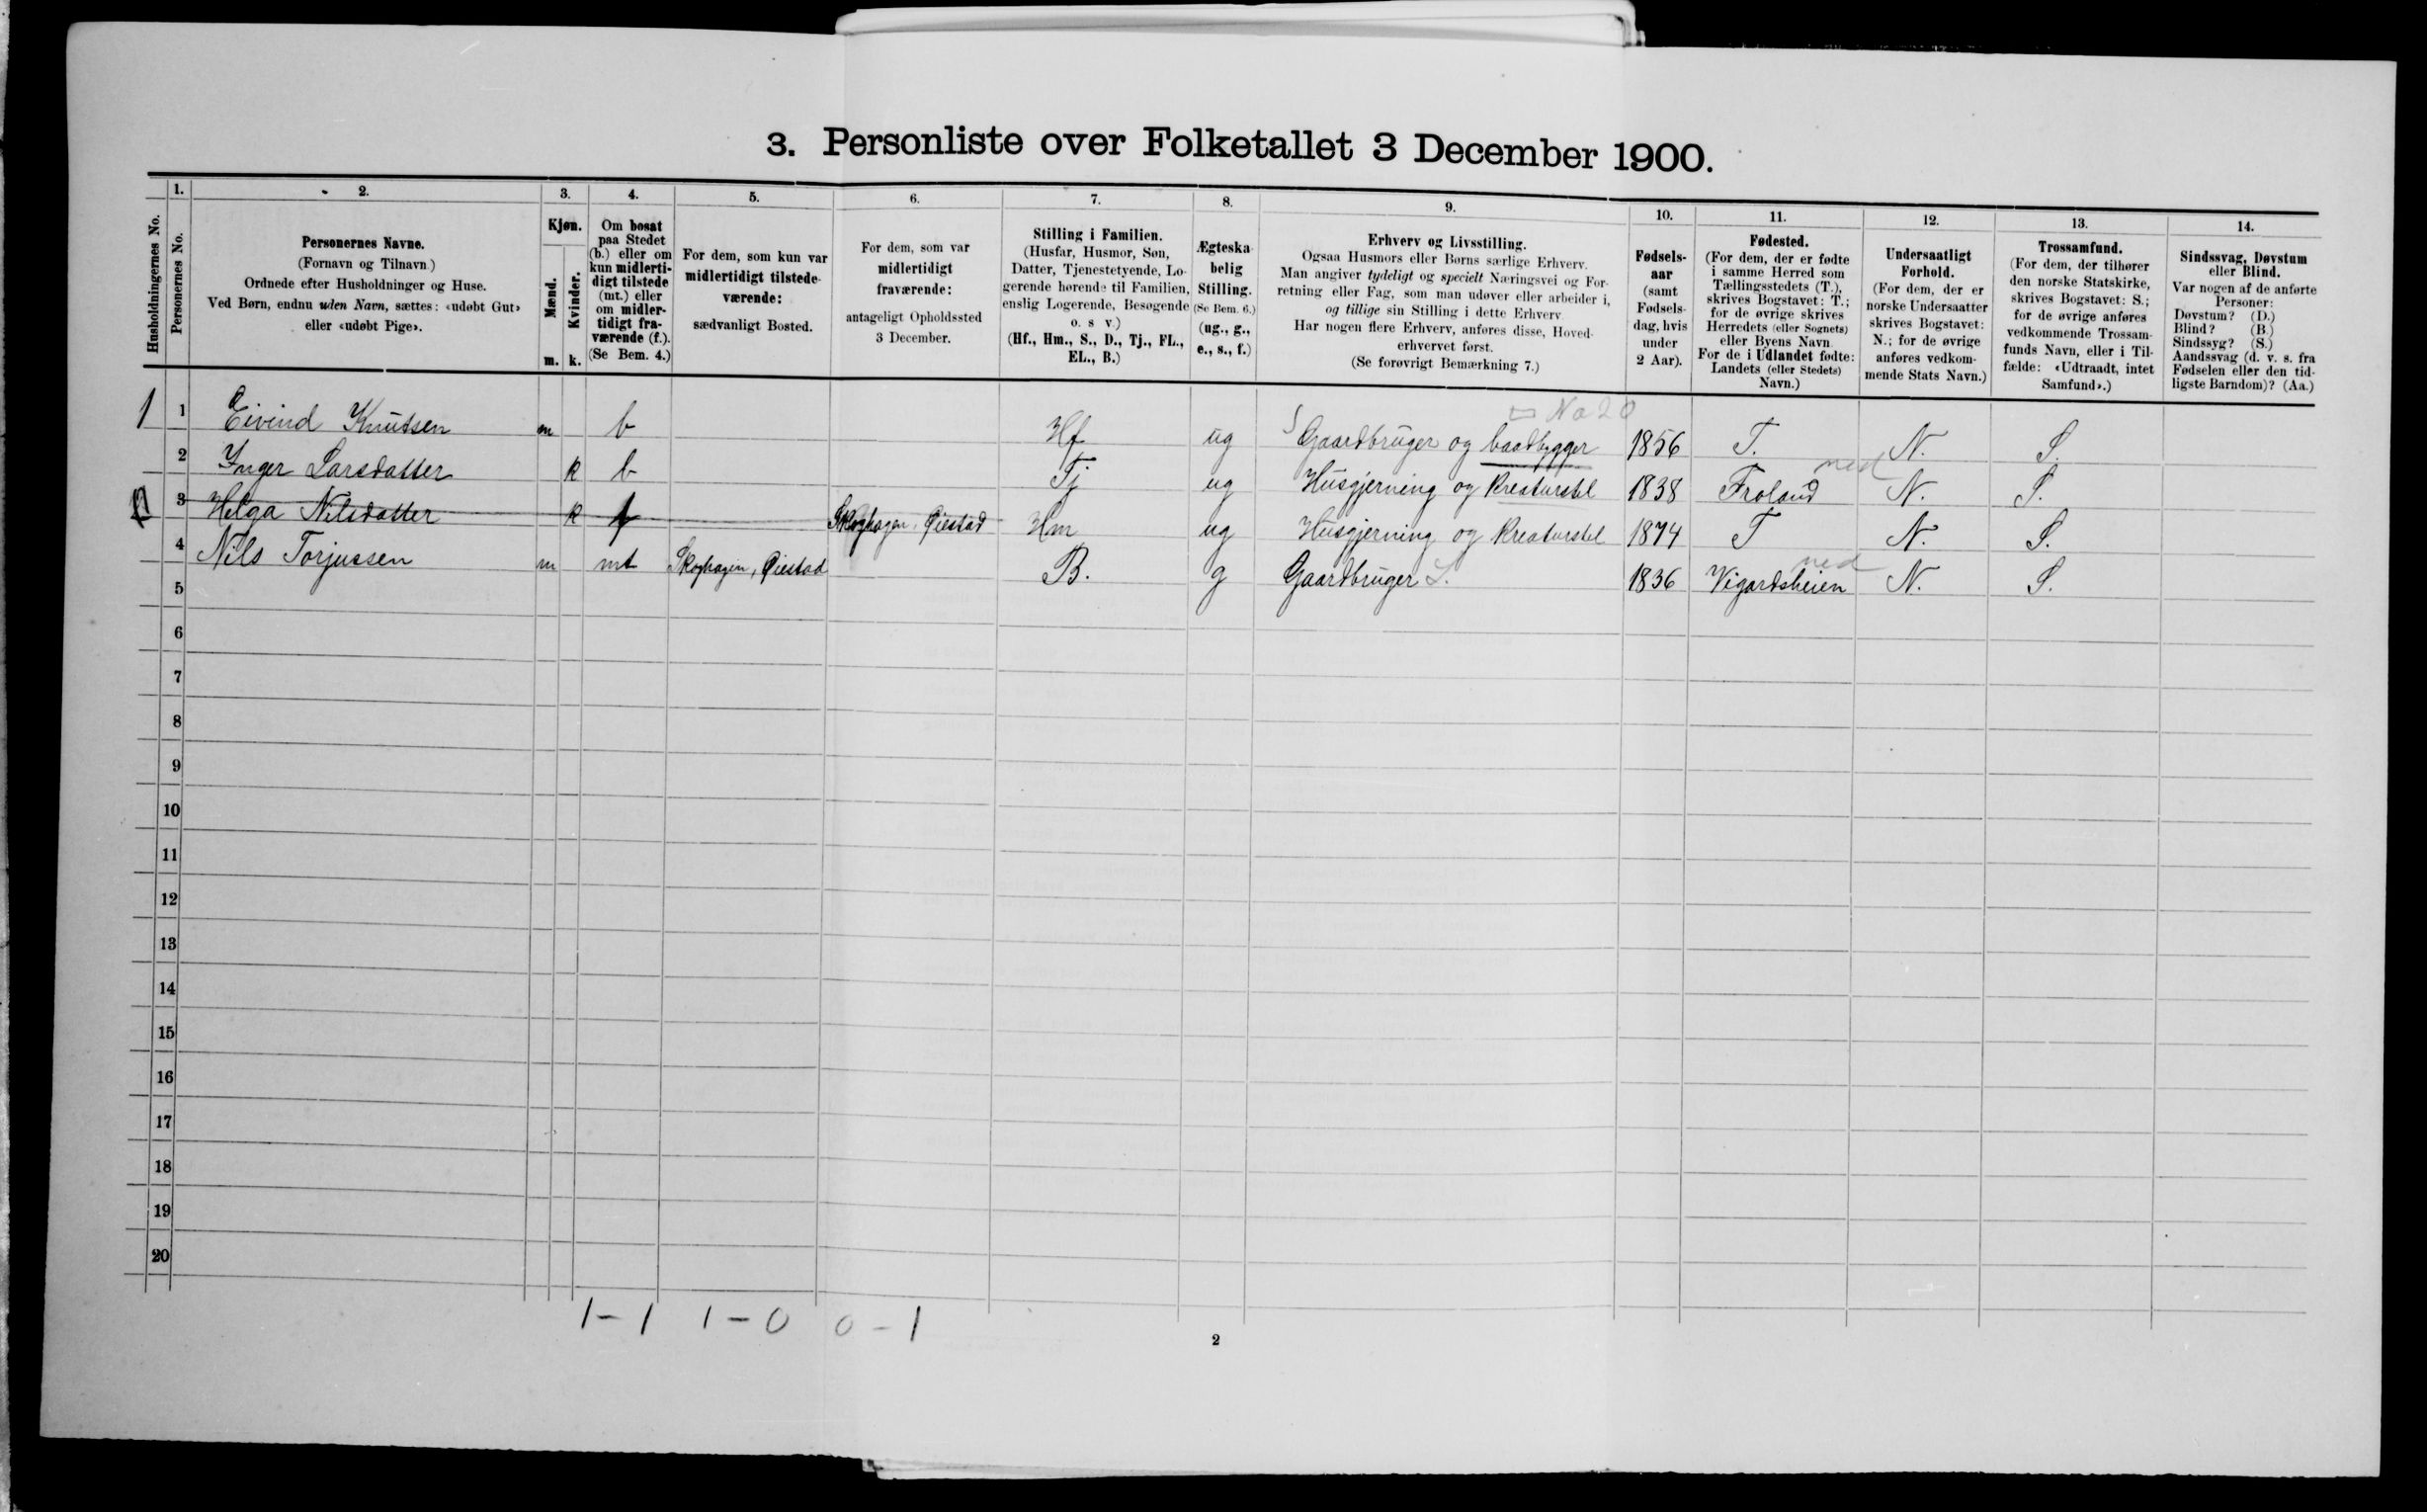 3. Personliste over Folketallet 3 December 1900.
1. 2. 3. 4. 5. 6. 7. 8. 9. 10. 11. 12. 13. 14.
Husholdningernes No.
Personernes No.
Personernes Navne.
(Fornavn og Tilnavn.)
Ordnede efter Husholdninger og Huse.
Ved Børn, endnu uden Navn, sættes: «udøbt Gut»
eller «udøbt Pige».
Kjøn.
Mænd.
Kvinder.
m. k.
Om bosat
paa Stedet
(b.) eller om
kun midlerti-
digt tilstede
(mt.) eller
om midler-
tidigt fra-
værende (f.).
(Se Bem. 4.)
For dem, som kun var
midlertidigt tilstede-
værende:
sædvanligt Bosted.
For dem, som var
midlertidigt
fraværende:
antageligt Opholdssted
3 December.
Stilling i Familien.
(Husfar, Husmor, Søn,
Datter, Tjenestetyende, Lo-
gerende hørende til Familien,
enslig Logerende, Besøgende
o. s v.)
(Hf., Hm., S., D., Tj., FL.,
EL., B.)
Ægteska-
belig
Stilling.
(Se Bem. 6.)
(ug., g.,
e., s., f.)
Erhverv og Livsstilling.
Ogsaa Husmors eller Børns særlige Erhverv.
Man angiver tydeligt og specielt Næringsvei og For-
retning eller Fag, som man udøver eller arbeider i,
og tillige sin Stilling i dette Erhverv.
Har nogen flere Erhverv, anføres disse, Hoved-
erhvervet først.
(Se forøvrigt Bemærkning 7.)
Fødsels-
aar
(samt
Fødsels-
dag, hvis
under
2 Aar).
Fødested.
(For dem, der er fødte
i samme Herred som
Tællingsstedets (T.),
skrives Bogstavet: T.;
for de øvrige skrives
Herredets (eller Sognets)
eller Byens Navn.
For de i Udlandet fødte:
Landets (eller Stedets)
Navn.)
Undersaatligt
Forhold.
(For dem, der er
norske Undersaatter
skrives Bogstavet:
N.; for de øvrige
anføres vedkom-
mende Stats Navn.)
Trossamfund.
(For dem, der tilhører
den norske Statskirke,
skrives Bogstavet: S.;
for de øvrige anføres
vedkommende Trossam-
funds Navn, eller i Til-
fælde: «Udtraadt, intet
Samfund».)
Sindssvag, Døvstum
eller Blind.
Var nogen af de anførte
Personer:
Døvstum? (D.)
Blind? (B.)
Sindssyg? (S.)
Aandssvag (d. v. s. fra
Fødselen eller den tid-
ligste Barndom)? (Aa.)
No 20
1 1 Eivind Knutsen m b Hf ug Gaardbruger og baadbygger 1856 T. N. S.
2 Inger Larsdatter k b Tj ug Husgjerning og Kreaturstel 1838 Froland ned N. S.
3 Helga Nilsdatter k f Skoghagen, Øiestad Hm ug Husgjerning og Kreaturstel 1874 T N. S.
4 Nils Torjussen m mt Skoghagen, Øiestad B. g Gaardbruger S. 1836 Vigardsheien ned N. S.
5
6
7
8
9
10
11
12
13
14
15
16
17
18
19
20
1-1 1-0 0-1
2